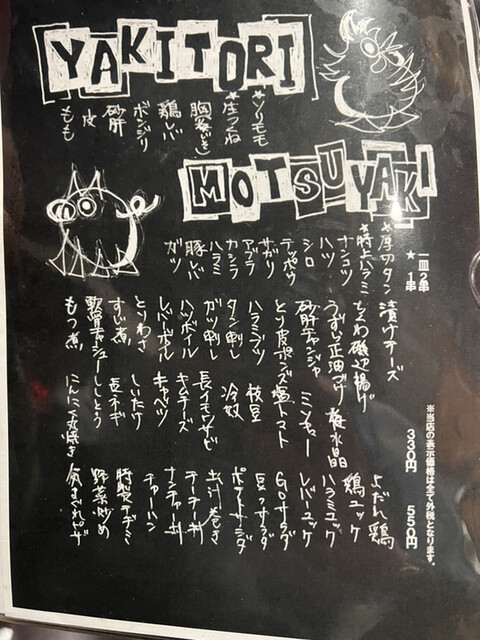 YAKITORI
★ソリモモ
★左つくね
鶏レバー
ボンジリ
砂肝
皮
もも
MOTSUYAKI
一皿2串
★1串
★厚切タン
★特上ハラミ
ナンコツ
ハツ
シロ
テッポウ
サガリ
アブラ
カシラ
ハラミ
豚レバー
ガツ
※当店の表示価格は全て外税となります。
330円
550円
漬けチーズ
ちくわ磯辺揚げ
うずら正油づけ
砂肝チャンジャ
とり皮ポン酢
ハラミブツ
タン刺し
ガツ刺し
ハツボイル
レバーボイル
とりわさ
すじ煮
軟骨チャーシュー
もつ煮
桜水晶
ミンチャー
塩トマト
枝豆
冷奴
長イモワサビ
キムチーズ
キャベツ
しいたけ
長ネギ
ししとう
にんにく丸焼き
よだれ鶏
鶏ユッケ
ハラミユッケ
レバーユッケ
GOサラダ
豆っサラダ
ポテトサラダ
出汁巻き
テーテー丼
ナンチャー丼
チャーハン
特製チヂミ
野菜炒め
気まぐれピザ